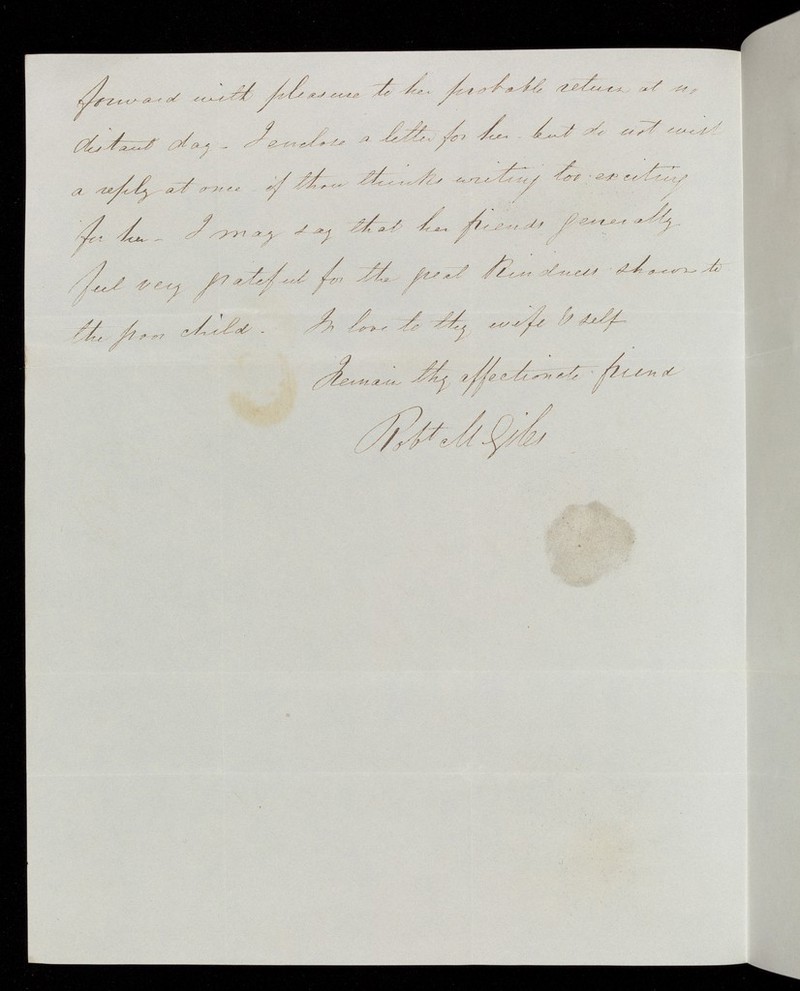 forward with pleasure to her probable return at no
distant day - I enclose a letter for her but do not wish
a reply at once if thou thinks writing too exciting
for her - I may say that her friends generally
feel very grateful for the great kindness shown to
the poor child. In love to thy wife & self
I remain thy affectionate friend
Robt M Giles